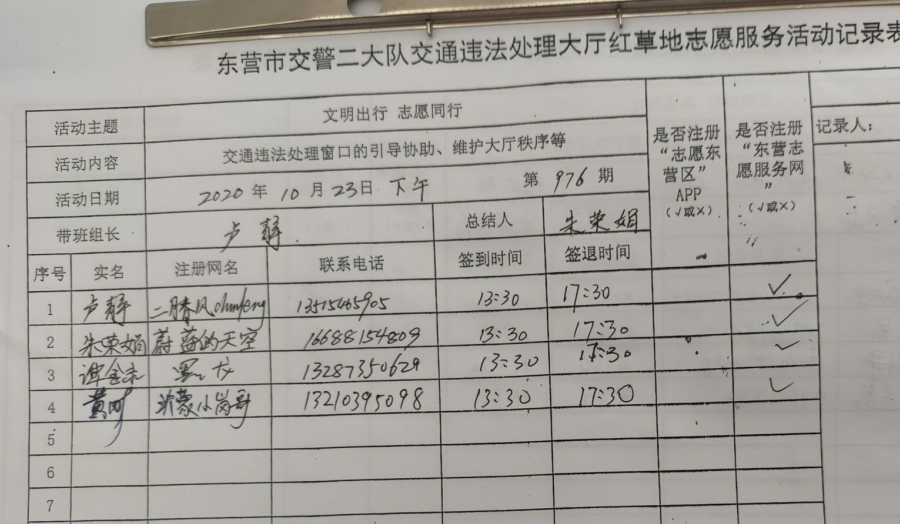 东营市交警二大队交通违法处理大厅红草地志愿服务活动记录表
活动主题 文明出行 志愿同行
活动内容 交通违法处理窗口的引导协助、维护大厅秩序等
活动日期 2020年10月23日 下午 第976期
带班组长 卢静 总结人 朱荣娟
是否注册
“志愿东
营区”
APP
(√或×)
是否注册
“东营志
愿服务网
”
(√或×)
记录人:
序号 实名 注册网名 联系电话 签到时间 签退时间
1 卢静 二月春风 13515465905 13:30 17:30 √
2 朱荣娟 蔚蓝的天空 16688154809 13:30 17:30 √
3 13287350629 13:30 17:30 √
4 13210395098 13:30 17:30 √
5
6
7